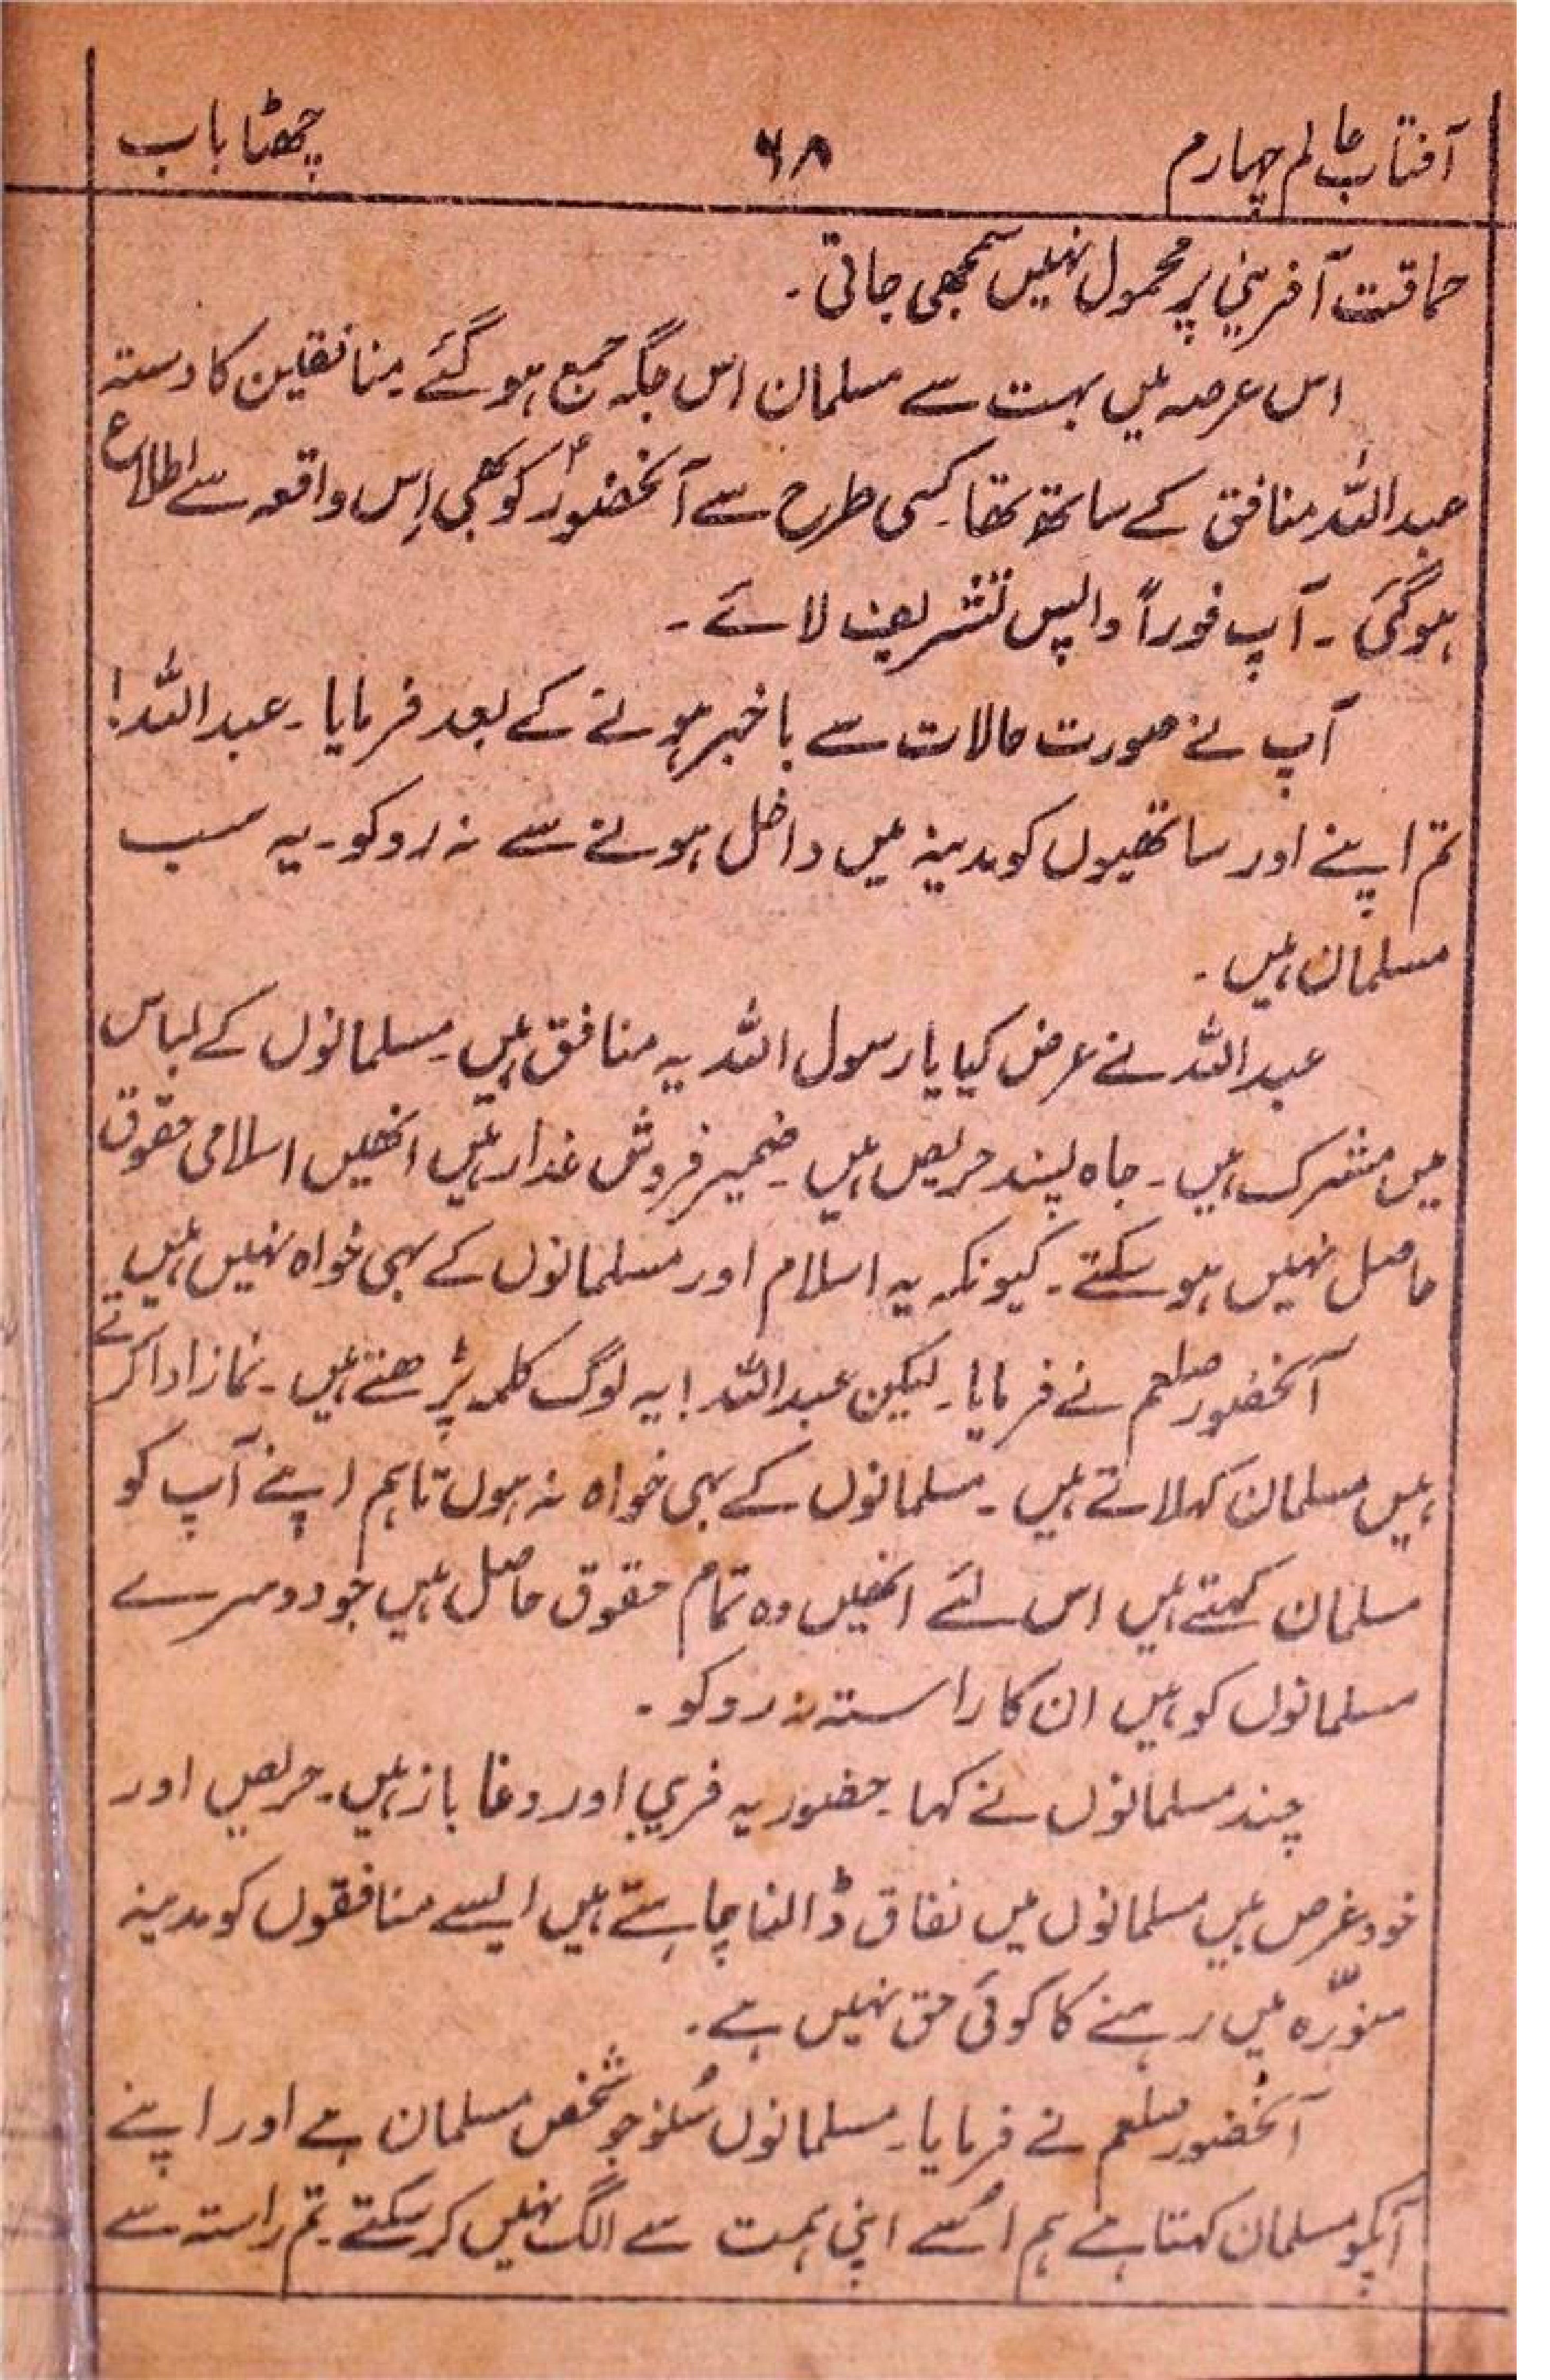 آفتاب عالم چہارم ۶۸ چھٹا باب
حماقت آفرینی پر محمول نہیں سمجھی جاتی۔
اس عرصہ میں بہت سے مسلمان اس جگہ جمع ہو گئے۔ منافقین کا دستہ
عبداللہ منافق کے ساتھ تھا۔ کسی طرح سے آنحضورؐ کو بھی اِس واقعہ سے اطلاع
ہو گئی۔ آپ فوراً واپس تشریف لائے۔
آپ نے صورت حالات سے باخبر ہونے کے بعد فرمایا۔ عبداللہ!
تم اپنے اور ساتھیوں کو مدینہ میں داخل ہونے سے نہ روکو۔ یہ سب
مسلمان ہیں۔
عبداللہ نے عرض کیا یا رسول اللہ یہ منافق ہیں۔ مسلمانوں کے لباس
میں مشرک ہیں۔ جاہ پسند حریص ہیں۔ ضمیر فروش غدار ہیں انھیں اسلامی حقوق
حاصل نہیں ہو سکتے۔ کیونکہ یہ اسلام اور مسلمانوں کے بہی خواہ نہیں ہیں
آنحضور صلعم نے فرمایا۔ لیکن عبداللہ! یہ لوگ کلمہ پڑھتے ہیں۔ نماز ادا کرتے
ہیں مسلمان کہلاتے ہیں۔ مسلمانوں کے بہی خواہ نہ ہوں تاہم اپنے آپ کو
مسلمان کہتے ہیں اس لئے انھیں وہ تمام حقوق حاصل ہیں جو دوسرے
مسلمانوں کو ہیں ان کا راستہ نہ روکو۔
چند مسلمانوں نے کہا۔ حضور یہ فریبی اور دغا باز ہیں۔ حریص اور
خود غرض ہیں مسلمانوں میں نفاق ڈالنا چاہتے ہیں ایسے منافقوں کو مدینہ
منوّرہ میں رہنے کا کوئی حق نہیں ہے۔
آنحضور صلعم نے فرمایا۔ مسلمانوں سُنو جو شخص مسلمان ہے اور اپنے
آپکو مسلمان کہتا ہے ہم اُسے اپنی ہمت سے الگ نہیں کر سکتے۔ تم راستہ سے